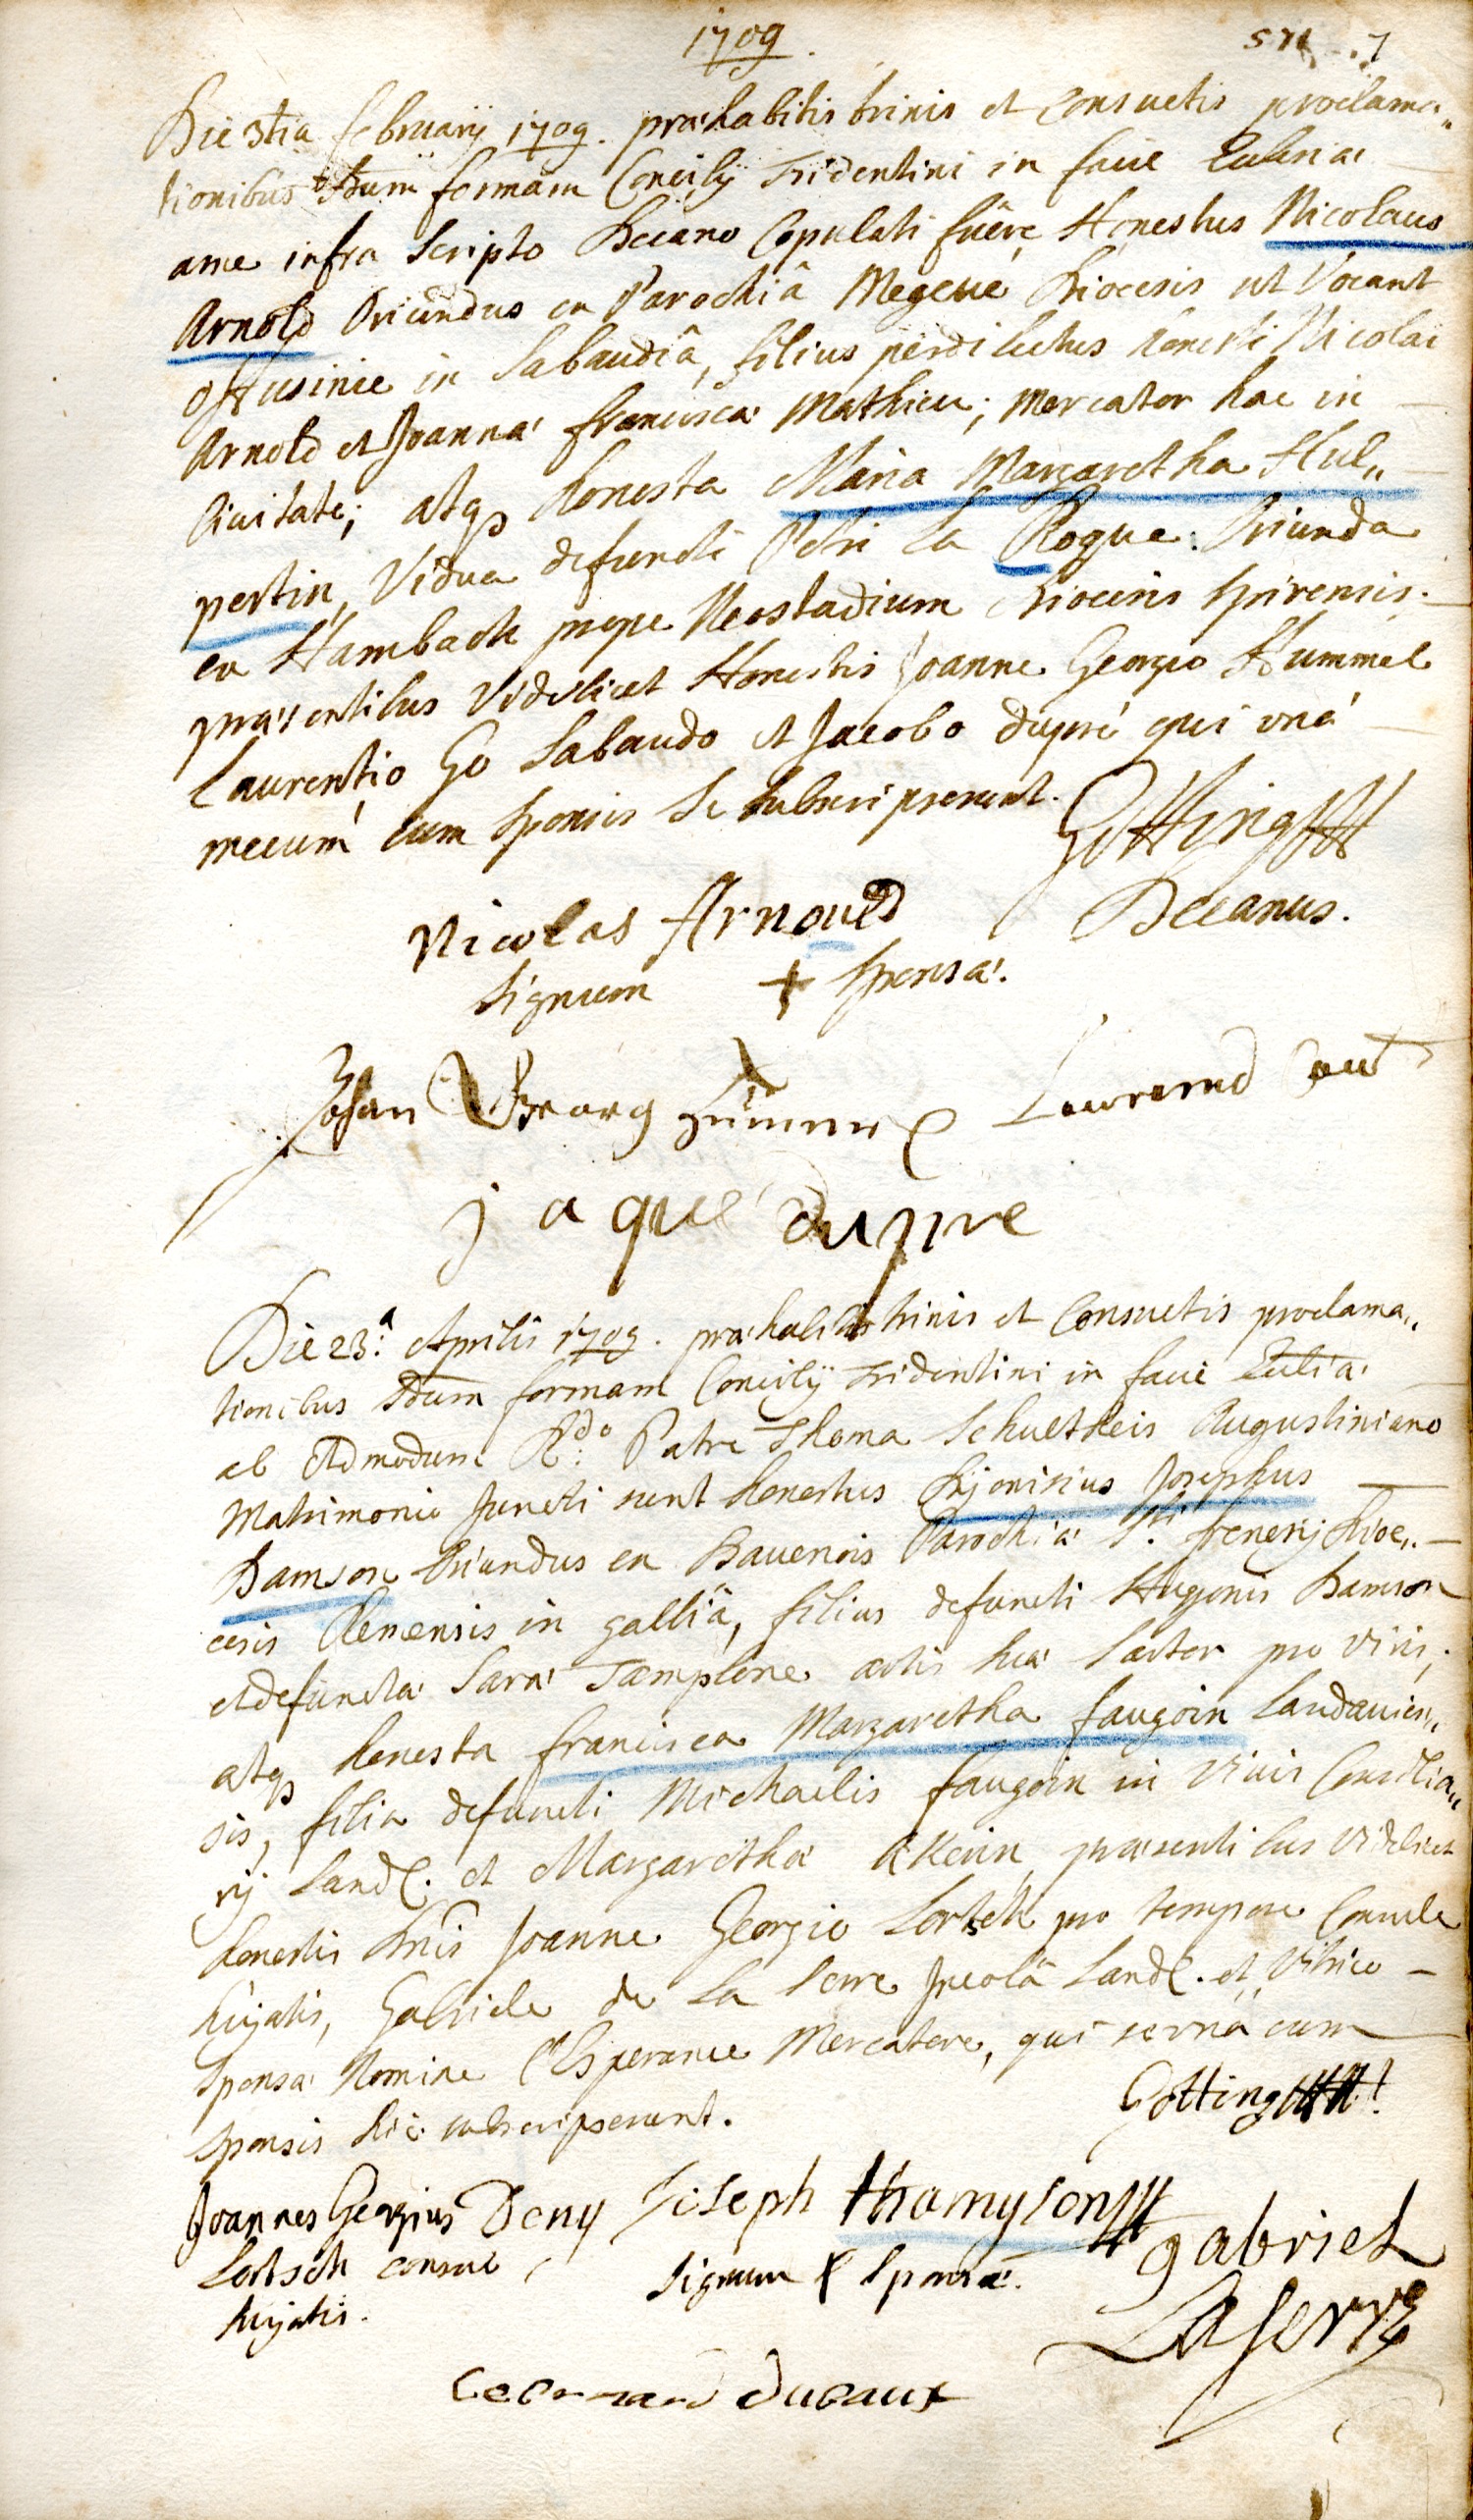 1709.
Die 3tia februarij 1709. præhabitis trinis et Consuetis proclama„
tionibus Sdum formam Concilij Tridentini in facie Ecclesiæ
a me infra Scripto Decano Copulati fuêre Honestus Nicolaus
Arnold Oriundus ex Parochiâ Megeve Diocesis ut Vocant
in Sabaudiâ, filius perdilectus honesti Nicolai
Arnold et Joannæ franciscæ Mathieu; Mercator hac in
Civitate; atq3 honesta Maria Margaretha Hul„
pertin, Vidua defuncti Petri La Roque. Oriunda
ex Hambach prope Neostadium Diocesis Spirensis.
præsentibus Videlicet Honestis Joanne Georgio Hummel
Laurentio Go Sabaudo et Jacobo dupré qui unà
mecum cum Sponsis Se Subscripserunt.
Götting
Decanus.
Nicolas Arnould
Signum + Sponsæ.
Johan Georg Hümmel
jaque dupre
Die 23.a Aprilis 1709. præhabitis trinis et Consuetis proclama„
tionibus Sdum formam Concilij Tridentini in facie Ecclesiæ
ab Admodum R.do Patre Thoma Schultheis Augustiniano
Matrimonio Juncti sunt honestus Dijonisius Josephus
Damson Oriundus ex Bavenois Parochiæ Sti. Dioe„
cesis in galliâ, filius defuncti Hugonis Damson
et defunctæ Saræ Templere artis suæ Sartor pro Viris;
atq3 honesta francisca Margaretha faugoin Landavien„
sis, filia defuncti Michaelis faugoin in Vivis Consilia„
rij Land. et Margarethæ præsentibus Videlicet
honestis Dnis Joanne Georgio Lortsch pro tempore Consule
hujatis, Gabriele de La Serre Incolâ Land. et Vitrico
Sponsæ Nomine l'Esperance Mercatore, qui se una cum
Sponsis hic subscripserunt.
Götting
Joannes Georgius Deny Joseph thamyson
Lortsch consul
hujatis.
Signum Sponsæ.
gabriel
Laserre
ducaux